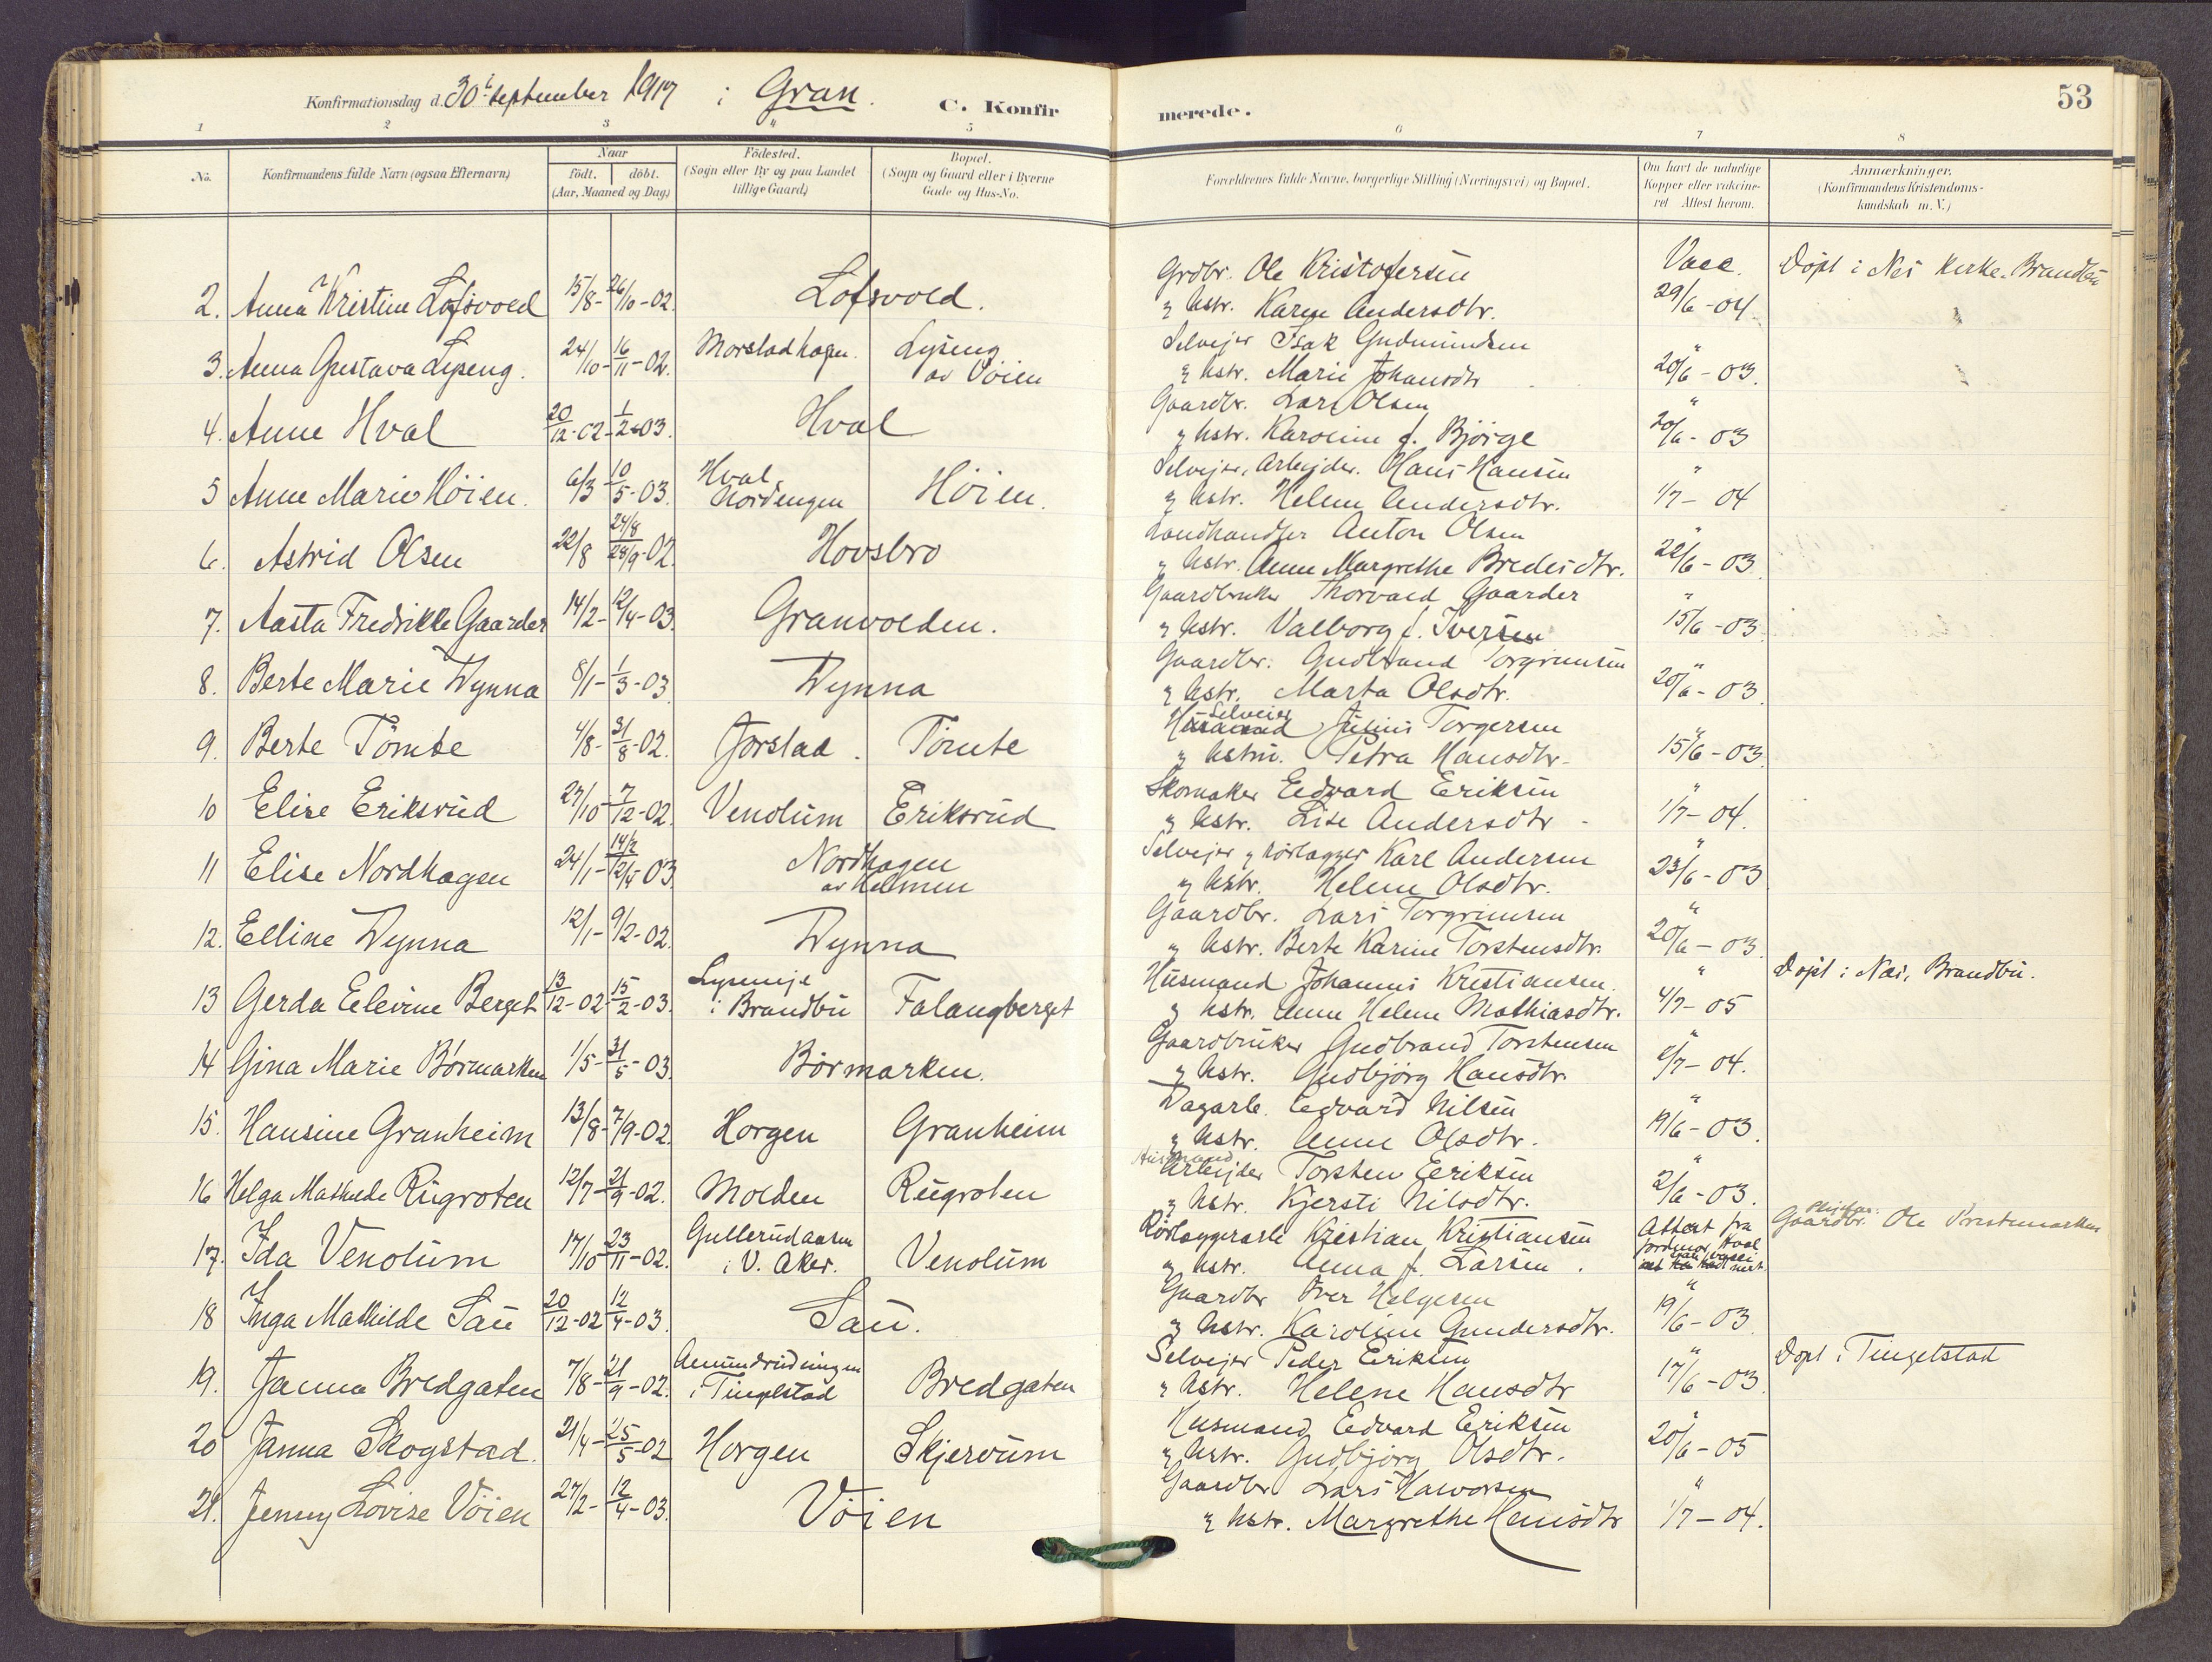 Konfirmationsdag d. 30te september 1917 i Gran. C. Konfirmerede. 53
1 2 3 4 5 6 7 8
No. Konfirmandens fulde Navn (ogsaa Efternavn) Naar født. døbt. (Aar, Maaned og Dag) Födested. (Sogn eller By og paa Landet tillige Gaard) Bopæl. (Sogn og Gaard eller i Byerne Gade og Hus-No. Forældrenes fulde Navne, borgerlige Stilling (Næringsvei) og Bopæl. Om havt de naturlige Kopper eller vakcineret Attest herom. Anmærkninger. (Konfirmandens Kristendomskundskab m. V.)
2. Anna Kristine Lofsvold 15/8- 26/10-02. Lofsvold. Grdbr. Ole Kristofersen Vacc. Døpt i Nes kirke. Brandbu
& hstr. Karen Andersdtr. 29/6-04.
3. Anna Gustava Lyseng. 24/10- 16/11-02. Morstadhagen. Lyseng av Vøien Selvejer Isak Gudmundsen "
& hstr. Marie Johansdtr 20/6-03.
4. Anne Hval 20/12-02- 1/2-03. Hval Gaardbr. Lars Olsen "
& hstr. Karoline f. Bjørge 20/6-03
5 Anne Marie Høien. 6/3- 10/5-03. Hval, Nordengen Høien. Selvejer, Arbejder. Hans Hansen "
& hstr. Helene Andersdtr. 1/7-04
6. Astrid Olsen 22/8 24/8 28/9-02. Hovsbro Landhandler Anton Olsen "
& hstr. Anne Margrethe Bredesdtr. 22/6-03.
7. Aasta Fredrikke Gaarder 14/2- 12/4-03. Granvolden. Gaardbruker Thorvald Gaarder "
& hstr. Valborg f. Iversen 15/6-03.
8. Berte Marie Dynna 8/1- 1/3-03. Dynna Gaardbr. Gudbrand Torgrimsen "
& hstr. Marta Olsdtr. 20/6-03
9. Berte Tömte 4/8- 31/8-02. Jorstad. Tömte Husmand Selveier Julius Torgersen "
& hstru. Petra Hansdtr. 15/6-03.
10 Elise Eriksrud 27/10- 7/12-02. Venolum Eriksrud Skomaker Edvard Eriksen "
& hstr. Lise Andersdtr 1/7-04.
11 Elise Nordhagen 24/1- 14/2 12/4-03. Nordhagen av Helmen Selvejer & rørlægger Karl Andersen "
& hstr. Helene Olsdtr. 23/6-03
12. Elline Dynna 12/1- 9/2-02. Dynna Gaardbr. Lars Torgrimsen "
& hstr. Berte Karine Torstensdtr. 20/6-03
13 Gerda Elevine Berget 13/12-02- 15/2-03. i Brandbu Falangberget Husmand Johannes Kristiansen. " Døpt i Nes, Brandbu.
& hstr. Anne Helene Mathiasdtr. 4/7-05
14 Gina Marie Børmarken 1/5- 31/5-03. Børmarken. Gaardbruker Gudbrand Torstensen "
& hstr. Gudbjørg Hansdtr. 1/7-04.
15. Hansine Granheim 13/8- 7/9-02. Horgen Granheim Dagarb. Edvard Nilsen "
& hstr. Anne Olsdtr. 19/6-03.
16 Helga Mathilde Rugroten 12/7- 21/9-02. Molden Rugroten Husmand Arbejder Torsten Eriksen "
& hstr. Kjersti Nilsdtr. 2/6-03.
17. Ida Venolum 17/10- 23/11-02. Gullerudaasen i V. Aker. Venolum Rørlæggerarb. Kristian Kristiansen Attest fra jordmor Hval Gaardbr. Ole
& hstr. Anna f. Larsen.
18 Inga Mathilde Sau 20/12-02 12/4-03. Sau. Gaardbr Iver Helgesen "
& hstr. Karoline Gundersdtr. 19/6-03
19. Janna Bredgaten 7/8- 21/9-02. Amundrudeningen i Tingelstad Bredgaten Selvejer Peder Eriksen " Døpt i Tingelstad
& hstr. Helene Hansdtr 17/6-03.
20 Janna Skogstad. 21/4- 25/5-02 Horgen Skjervum Husmand Edvard Eriksen "
& hstr. Gudbjørg Olsdtr. 20/6-05
21. Jenny Lovise Vøien 27/2- 12/4-03. Vøien Gaardbr Lars Halvorsen "
& hstr. Margrethe Hansdtr 1/7-04.